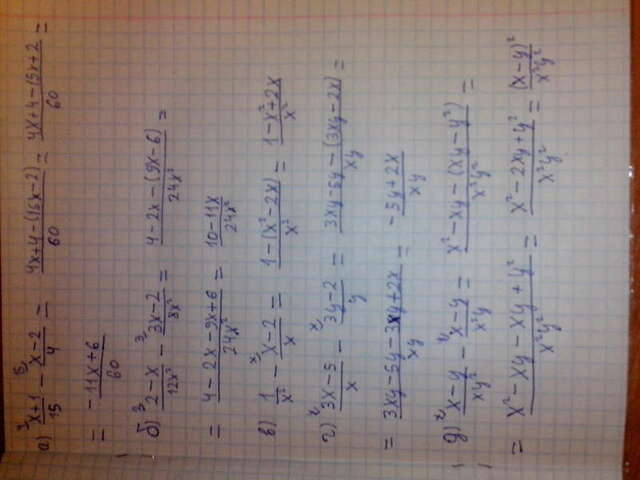 а) (x+1)/15 - (x-2)/4 = (4x+4-(15x-2))/60 = (4x+4-15x+2)/60 =
= (-11x+6)/60
б) (2-x)/12x² - (3x-2)/8x² = (4-2x-(9x-6))/24x² =
= (4-2x-9x+6)/24x² = (10-11x)/24x²
в) 1/x² - (x-2)/x = (1-(x²-2x))/x² = (1-x²+2x)/x²
г) (3x-5)/x - (3y-2)/y = (3xy-5y-(3xy-2x))/xy =
= (3xy-5y-3xy+2x)/xy = (-5y+2x)/xy
д) (x-y)/xy² - (x-y)/x²y = (x²-xy-(xy-y²))/x²y² =
= (x²-xy-xy+y²)/x²y² = (x²-2xy+y²)/x²y² = (x-y)²/x²y²